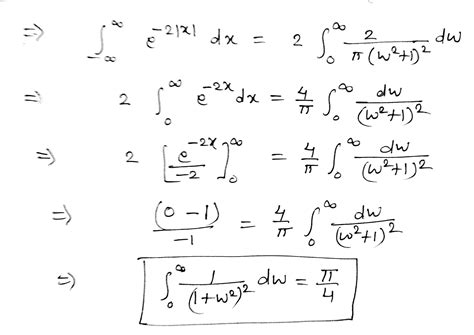 ⇒ ∫_{-∞}^{∞} e^{-2|x|} dx = 2 ∫_0^∞ 2/(π(ω²+1)²) dω
⇒ 2 ∫_0^∞ e^{-2x} dx = 4/π ∫_0^∞ dω/(ω²+1)²
⇒ 2 [e^{-2x}/-2]_0^∞ = 4/π ∫_0^∞ dω/(ω²+1)²
⇒ (0-1)/-1 = 4/π ∫_0^∞ dω/(ω²+1)²
⇒ ∫_0^∞ 1/(1+ω²)² dω = π/4